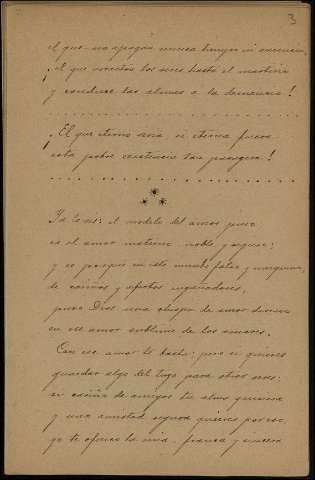 3
el que no apagan nunca tiempo ni ausencia,
¡el que
y conduce las almas á la demencia!
¡El que eterno sería si eterna fuera
esta pobre existencia tan pasajera!
Ya lo ves: el modelo del amor puro
es el amor materno noble y seguro;
y es porque en este mundo falaz y mezquino,
de cariños y afectos engañadores,
puso Dios una chispa de amor divino
en ese amor sublime de los amores.
Con ese amor te basta; pero si quieres
guardar algo del tuyo para otros seres:
si cariño de amigos tu alma quisiera
y una amistad segura quieres por eso,
yo te ofrezco la mia, franca y sincera